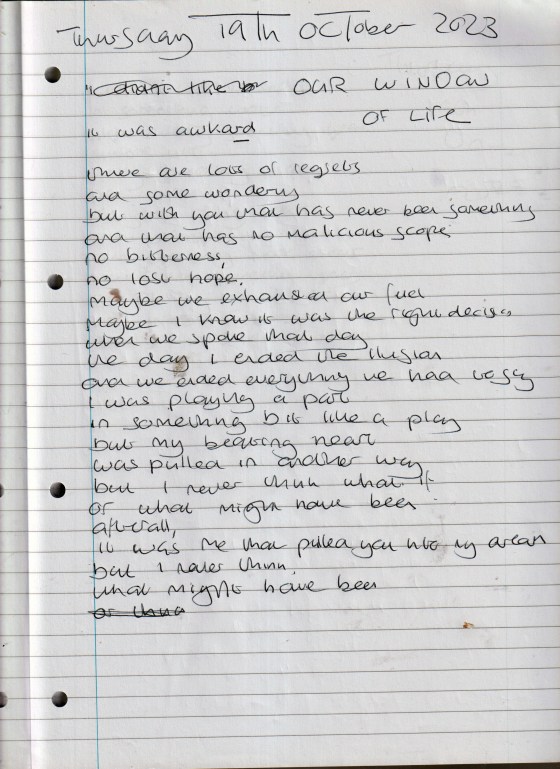 Thursday 19th October 2023
OUR WINDOW
OF LIFE
it was awkard
there are lots of regrets
and some wondering
but with you that has never been something
and that has no malicious scope
no bitterness,
no lost hope.
Maybe we exhausted our fuel
Maybe I know it was the right decision
when we spoke that day
the day I ended the illusion
and we ended everything we had
I was playing a part
in something bit like a play
but my beating heart
was pulled in another way
but I never think what if
or what might have been.
afterall,
it was me that pulled you into my
but I never think,
what might have been